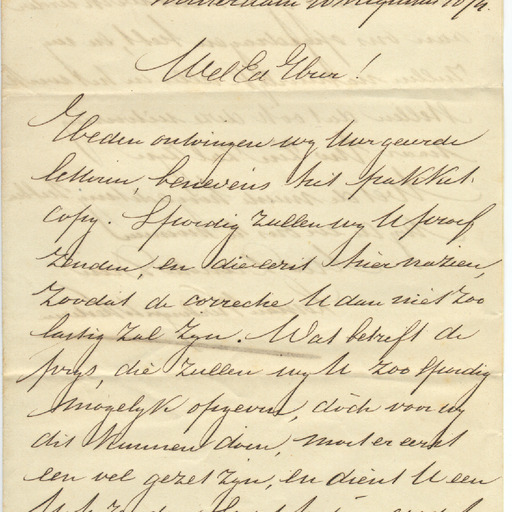 Wel Ed Heer!
Heden ontvingen wy Uw geeerde
letteren, benevens het pakket
copy. Spoedig zullen wy U proef
zenden, en die eerst hier nazien,
zoodat de correctie U dan niet zoo
lastig zal zyn. Wat betreft de
prys, die zullen wy U zoo spoedig
mogelyk opgeven, doch voor wy
dit kunnen doen, moet er eerst
een vel gezet zyn, en dient U een